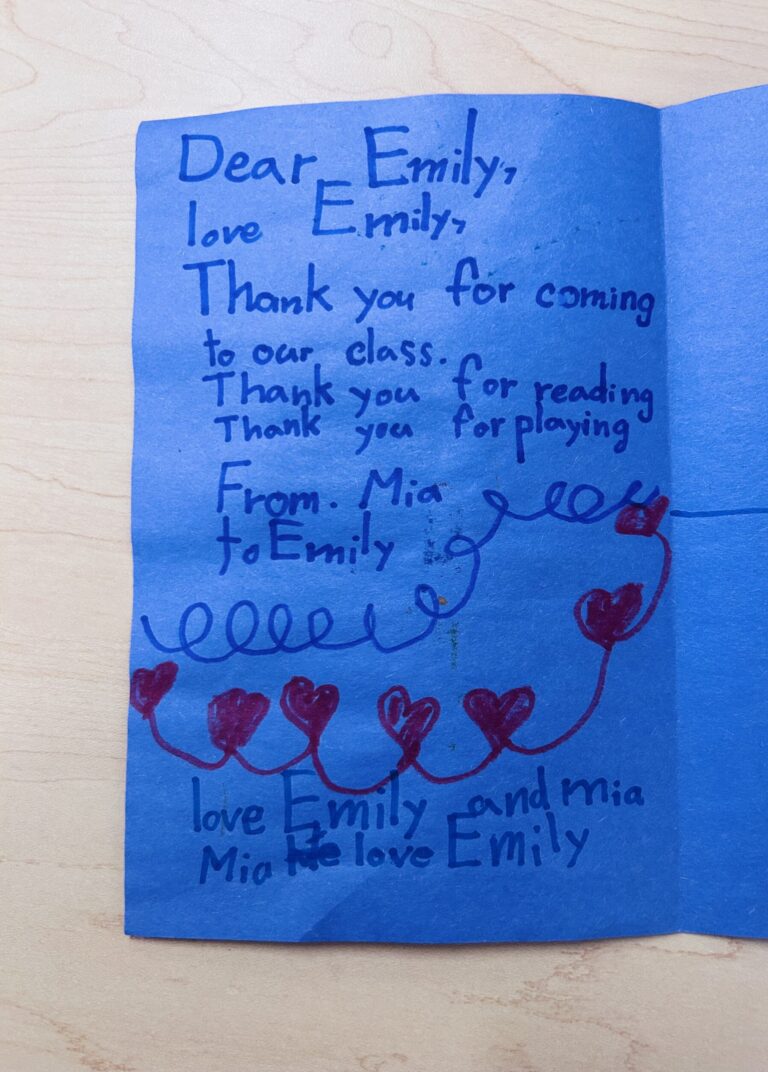 Dear Emily,
love Emily,
Thank you for coming
to our class.
Thank you for reading
Thank you for playing
From. Mia
to Emily
love Emily and mia
Mia love Emily